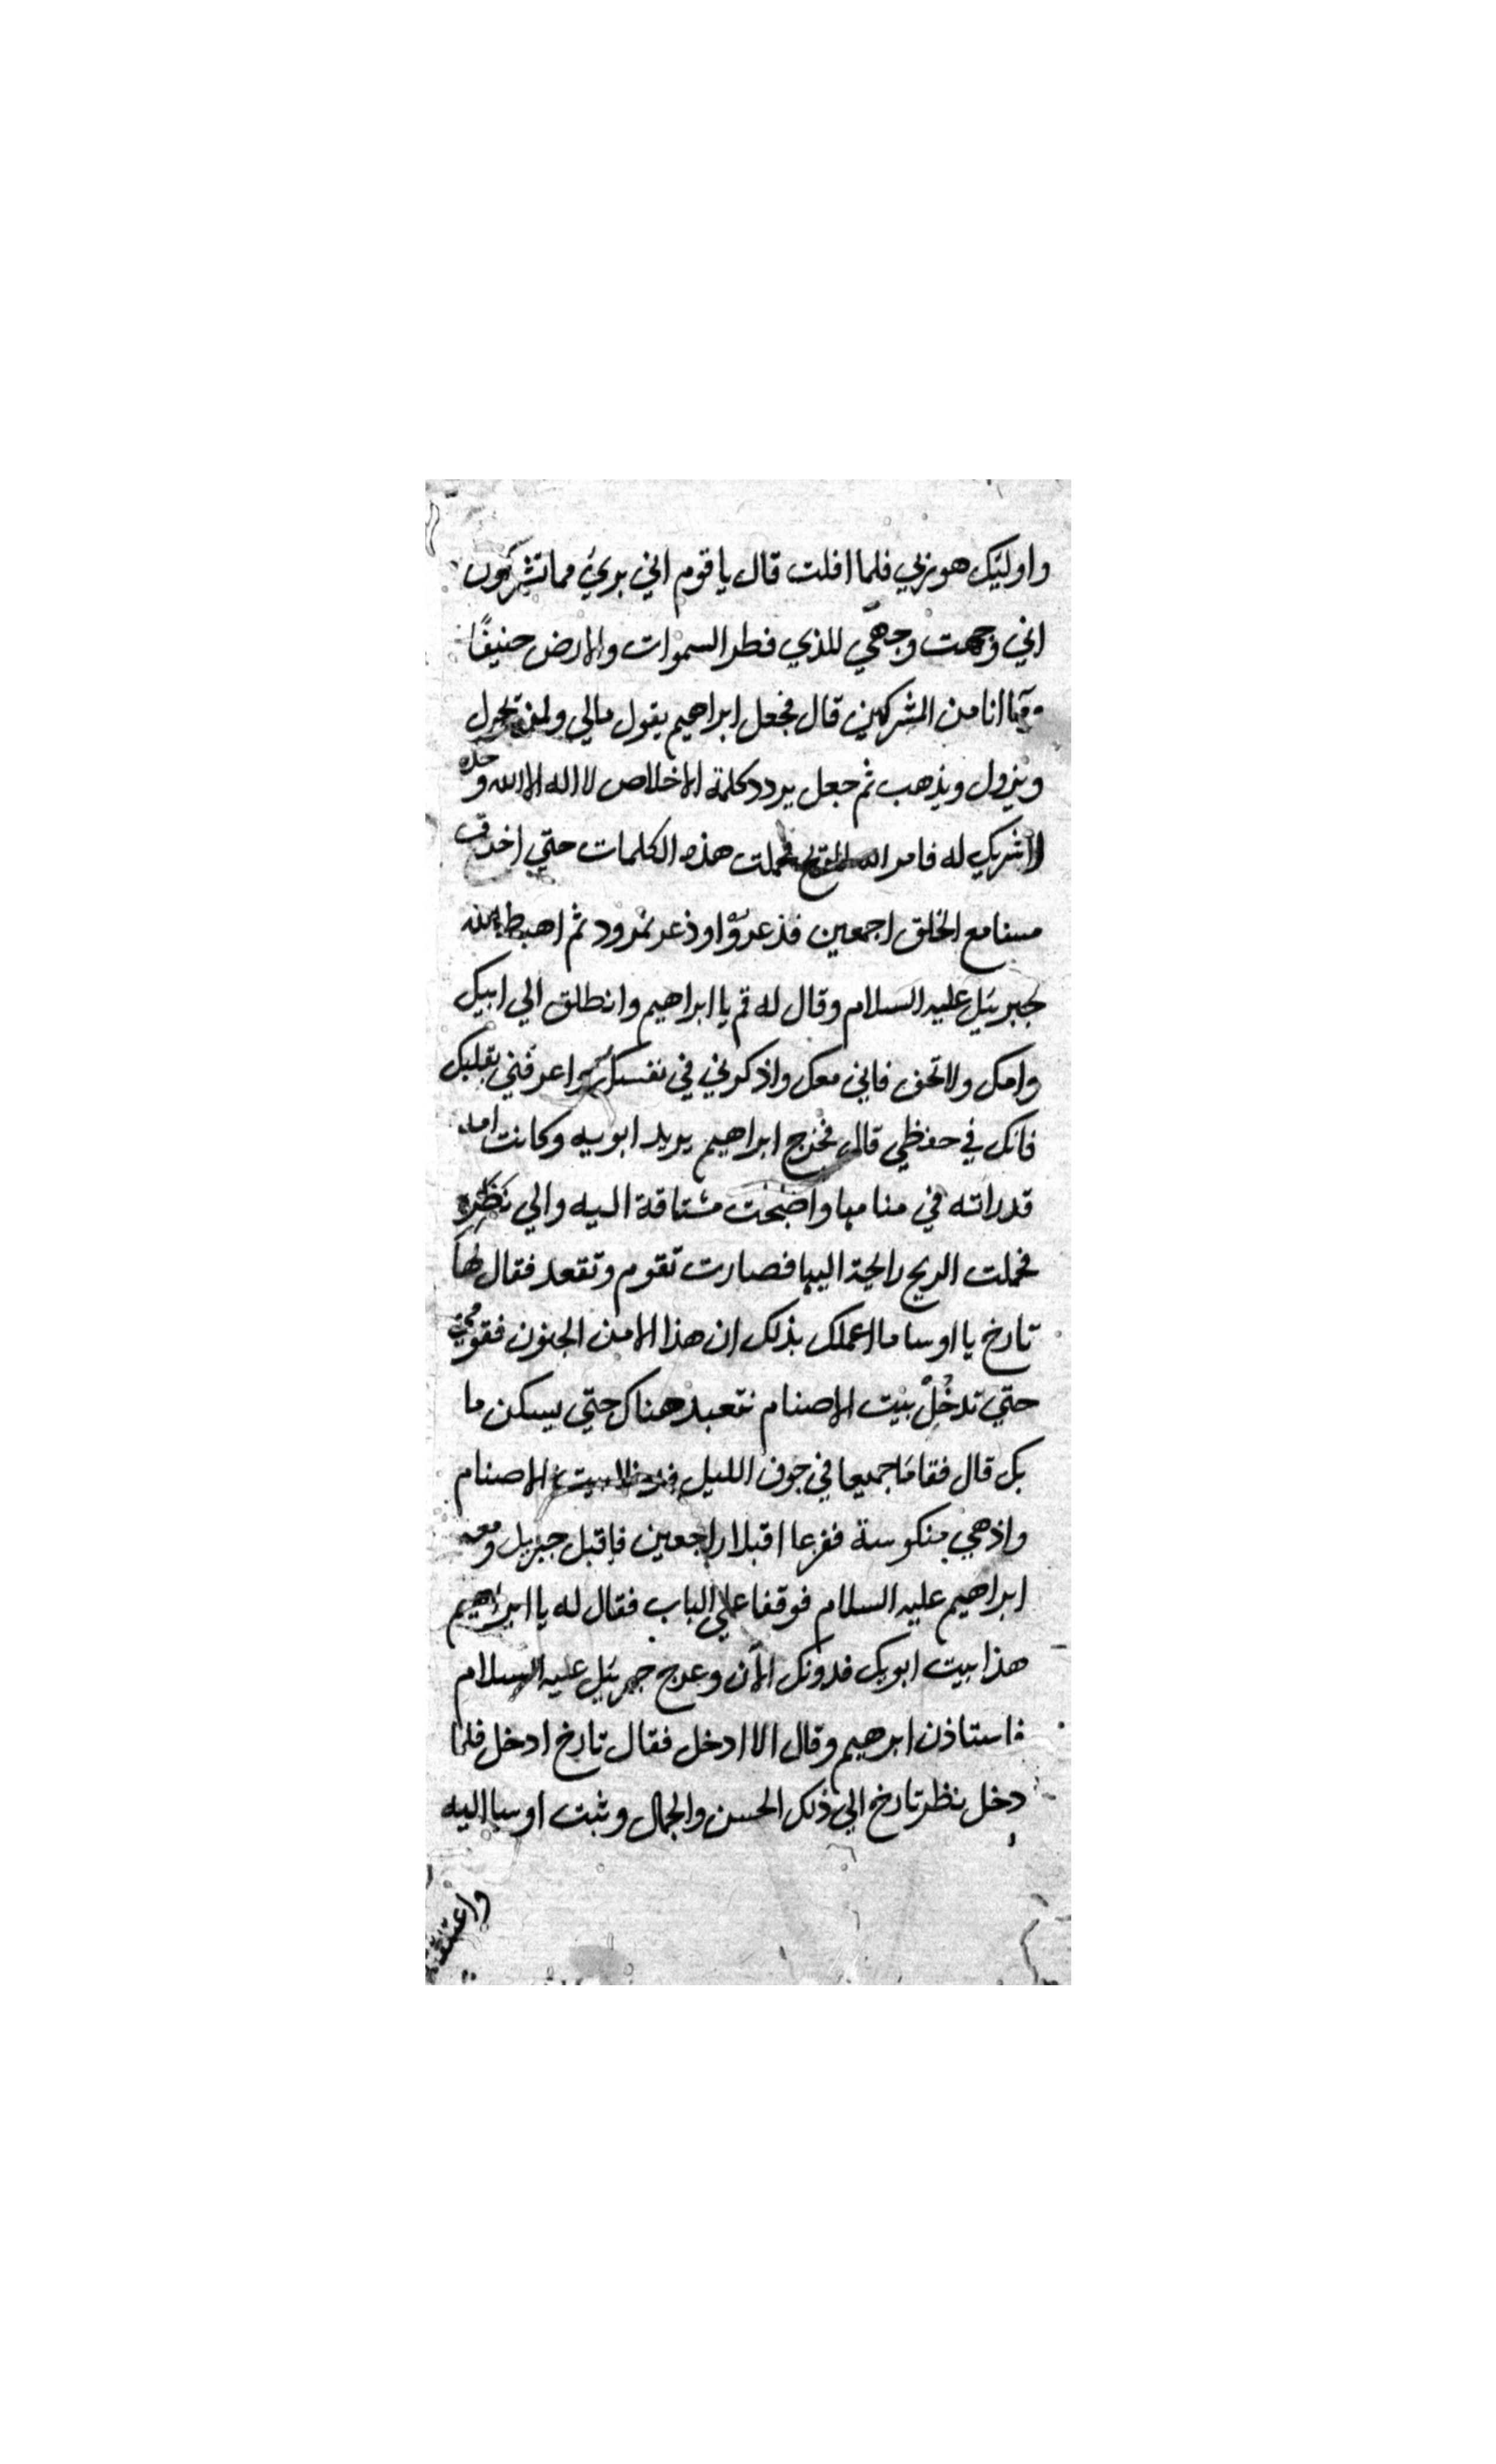 واوليك هو ربي فلما افلت قال يا قوم اني بريء مما تشركون
اني وجهت وجهي للذي فطر السموات والارض حنيفًا
وما انا من المشركين قال فجعل ابراهيم يقول مالي ولمن تحول
ويزول ويذهب ثم جعل يردد كلمة الاخلاص لا اله الا الله وحده
لا شريك له فامر الله الريح فحملت هذه الكلمات حتي اخذت
مسنامع الخلق اجمعين فذعروا وذعر نمرود ثم اهبط الله
جبرئيل عليه السلام وقال له قم يا ابراهيم وانطلق الي ابيك
وامك ولا تخف فاني معك واذكرني في نفسك واعرفني بقلبك
فانك في حفظي قال فخرج ابراهيم يريد ابويه وكانت امه
قد راته في منامها واضبحت مشتاقة اليه والي نظره
فحملت الريح رايحة اليها فصارت تقوم وتقعد فقال لها
تارخ يا اوسا ما اعملك بذلك ان هذا الا من الجنون فقومي
حتي تدخل بيت الاصنام نتعبد هناك حتي يسكن ما
بك قال فقاما جميعا في جوف الليل فدخلا بيت الاصنام
واذ هي منكوسة ففزعا اقبلا راجعين فاقبل جبريل ومعه
ابراهيم عليه السلام فوقفا علي الباب فقال له يا ابراهيم
هذا بيت ابويك فدونك الآن وعرج جبرئيل عليه السلام
فاستاذن ابرهيم وقال الا ادخل فقال تارخ ادخل فلما
دخل نظر تارخ الي ذلك الحسن والجمال وثبت اوسا اليه